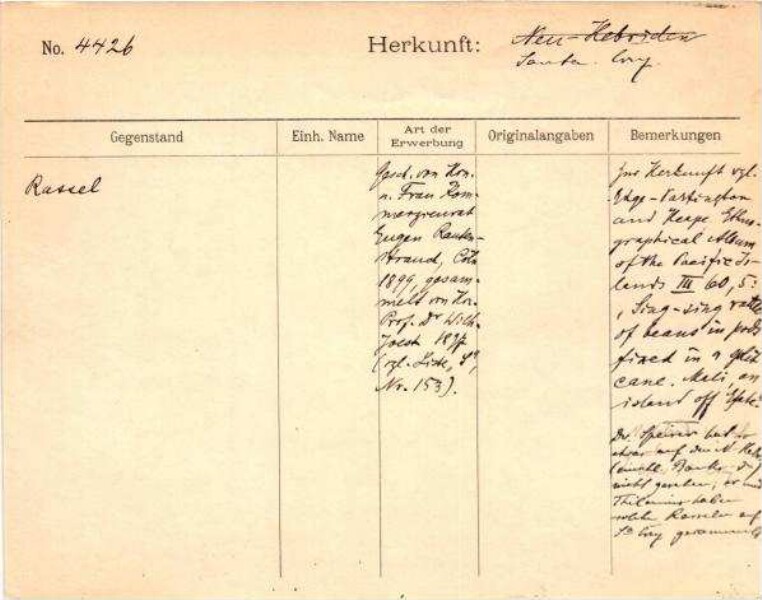 No. 4426
Herkunft: Neu-Hebriden
Santa Cruz.
Gegenstand
Einh. Name
Art der Erwerbung
Originalangaben
Bemerkungen
Rassel
Gesch. von Hrn.
u. Frau Kom-
merzienrat
Eugen Rauten-
strauch, Cöln
1899, gesam-
melt von Hrn.
Prof. Dr Wilh.
Joest 1897
(vgl. Liste,
Nr. 153).
Zur Herkunft vgl.
Edge-Partington
and Heape Ethno-
graphical Album
of the Pacific Is-
lands III 60, 5:
"Sing-sing rattle
of beans in pods
fixed in a split
cane. Meli, an
island off Efate."
Dr. Speiser hat so
etwas auf den N. Hebr.
(einschl. Banks-In.)
nicht gesehen; er und
Thilenius haben
solche Rasseln auf
Sa Cruz gesammelt